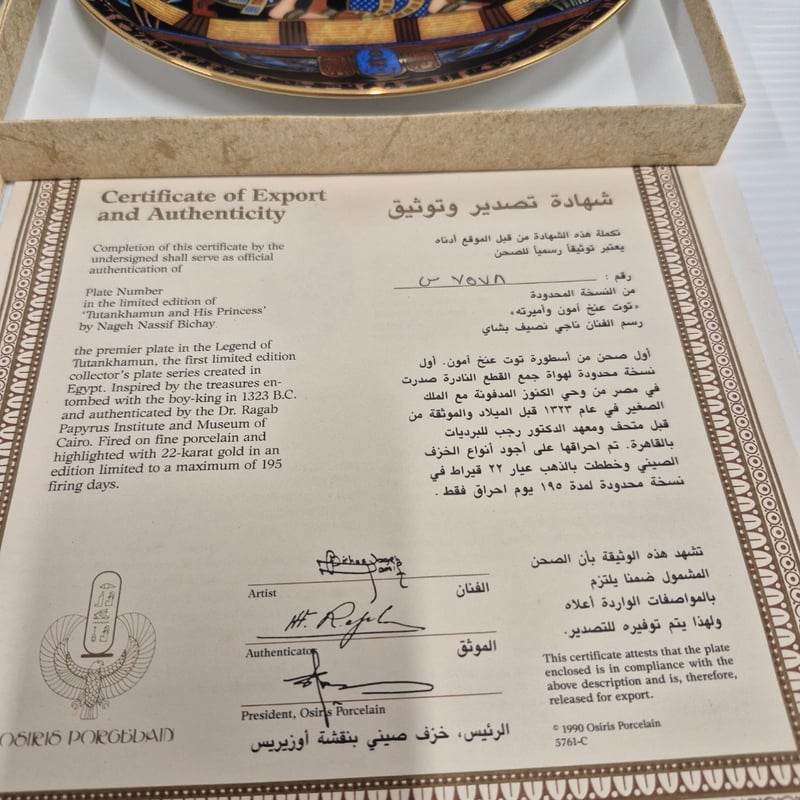 Certificate of Export
and Authenticity
Completion of this certificate by the
undersigned shall serve as official
authentication of
Plate Number
in the limited edition of
'Tutankhamun and His Princess'
by Nageh Nassif Bichay
the premier plate in the Legend of
Tutankhamun, the first limited edition
collector's plate series created in
Egypt. Inspired by the treasures en-
tombed with the boy-king in 1323 B.C.
and authenticated by the Dr. Ragab
Papyrus Institute and Museum of
Cairo. Fired on fine porcelain and
highlighted with 22-karat gold in an
edition limited to a maximum of 195
firing days.
شهادة تصدير وتوثيق
تكملة هذه الشهادة من قبل الموقع أدناه
يعتبر توثيقاً رسمياً للصحن
رقم : ٧٥٧٨ س
من النسخة المحدودة
«توت عنخ أمون وأميرته»
رسم الفنان ناجي نصيف بشاي
أول صحن من أسطورة توت عنخ أمون. أول
نسخة محدودة لهواة جمع القطع النادرة صدرت
في مصر من وحي الكنوز المدفونة مع الملك
الصغير في عام ١٣٢٣ قبل الميلاد والموثقة من
قبل متحف ومعهد الدكتور رجب للبرديات
بالقاهرة. تم احراقها على أجود أنواع الخزف
الصيني وخططت بالذهب عيار ٢٢ قيراط في
نسخة محدودة لمدة ١٩٥ يوم احراق فقط.
Artist الفنان
Authenticator الموثق
President, Osiris Porcelain
الرئيس، خزف صيني بنقشة أوزيريس
تشهد هذه الوثيقة بأن الصحن
المشمول ضمنا يلتزم
بالمواصفات الواردة أعلاه
ولهذا يتم توفيره للتصدير.
This certificate attests that the plate
enclosed is in compliance with the
above description and is, therefore,
released for export.
© 1990 Osiris Porcelain
5761-C
OSIRIS PORCELAIN